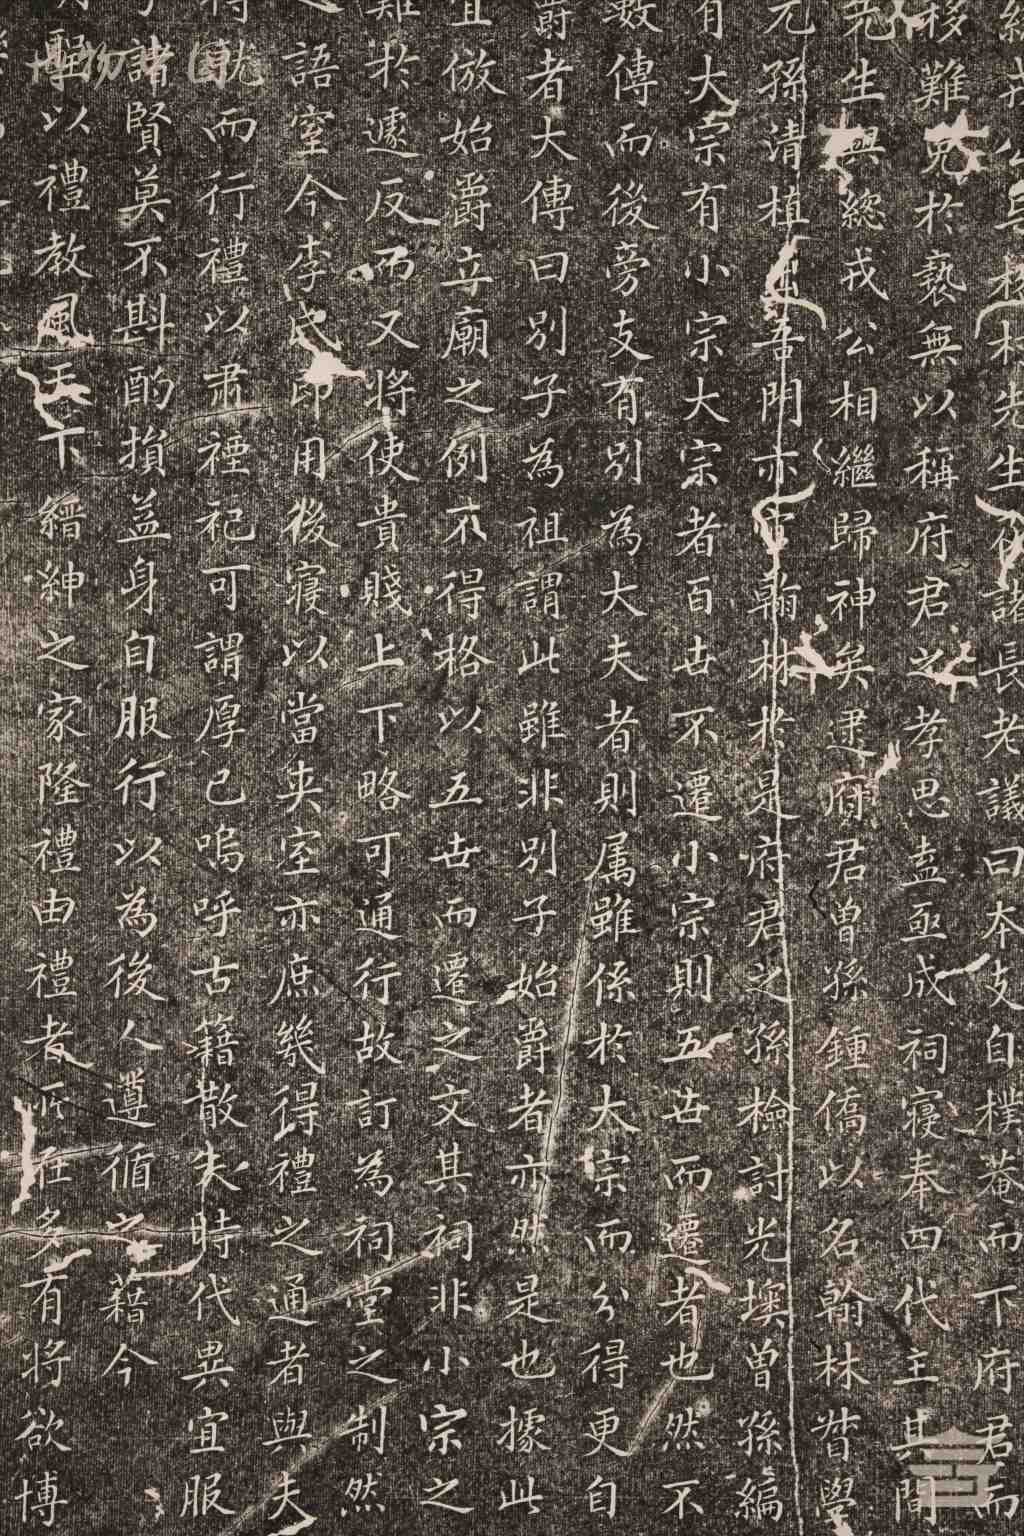 戎公與榕村先生從諸長老議曰本支自樸菴而下府君而
移難免於褻無以稱府君之孝思盍亟成祠寢奉四代主其間
先生與總戎公相繼歸神矣逮府君曾孫鍾僑以名翰林督學
元孫清植出吾門亦官翰林於是府君之孫檢討光墺曾孫編
有大宗有小宗大宗者百世不遷小宗則五世而遷者也然不
數傳而後旁支有別為大夫者則属雖係於大宗而分得更自
爵者大傳曰別子為祖謂此雖非別子始爵者亦然是也據此
宜倣始爵立廟之例不得格以五世而遷之文其祠非小宗之
難於遽反而又將使貴賤上下略可通行故訂為祠堂之制然
語室今李氏即用後寢以當夾室亦庶幾得禮之通者與夫
就而行禮以肅禋祀可謂厚已嗚呼古籍散失時代異宜服
諸賢莫不斟酌損益身自服行以為後人遵循之藉今
以禮教風天下縉紳之家隆禮由禮者所在多有將欲博